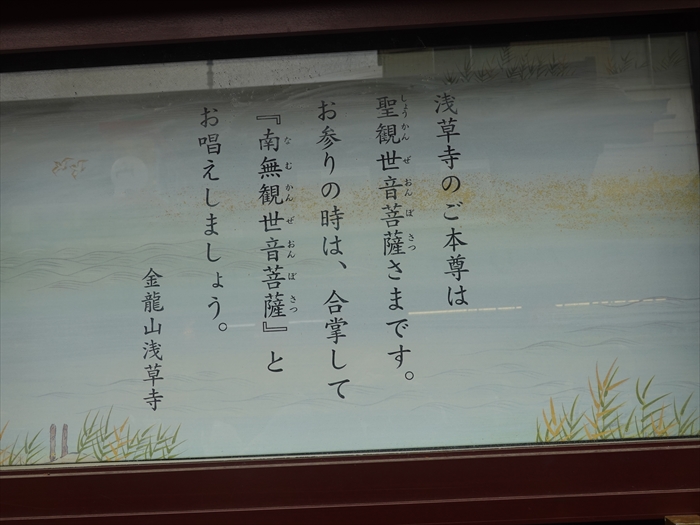 浅草寺のご本尊は
聖観世音菩薩さまです。
お参りの時は、合掌して
『南無観世音菩薩』と
お唱えしましょう。
金龍山浅草寺